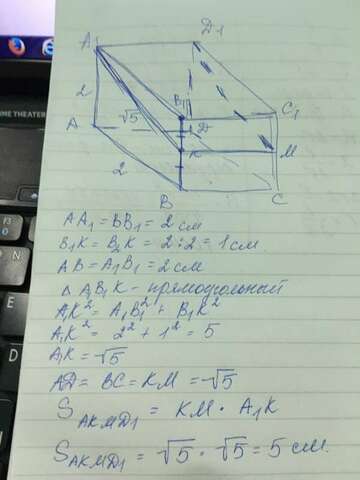 THEATER
A1
D1
2
B1
C1
√5
A
D
K
M
2
B
C
AA1 = BB1 = 2 см
B1K = B2K = 2:2 = 1 см
AB = A1B1 = 2 см
△ A1B1K - прямоугольный
A1K² = A1B1² + B1K²
A1K² = 2² + 1² = 5
A1K = √5
AD = BC = KM = √5
S AKMD1 = KM · A1K
S AKMD1 = √5 · √5 = 5 см